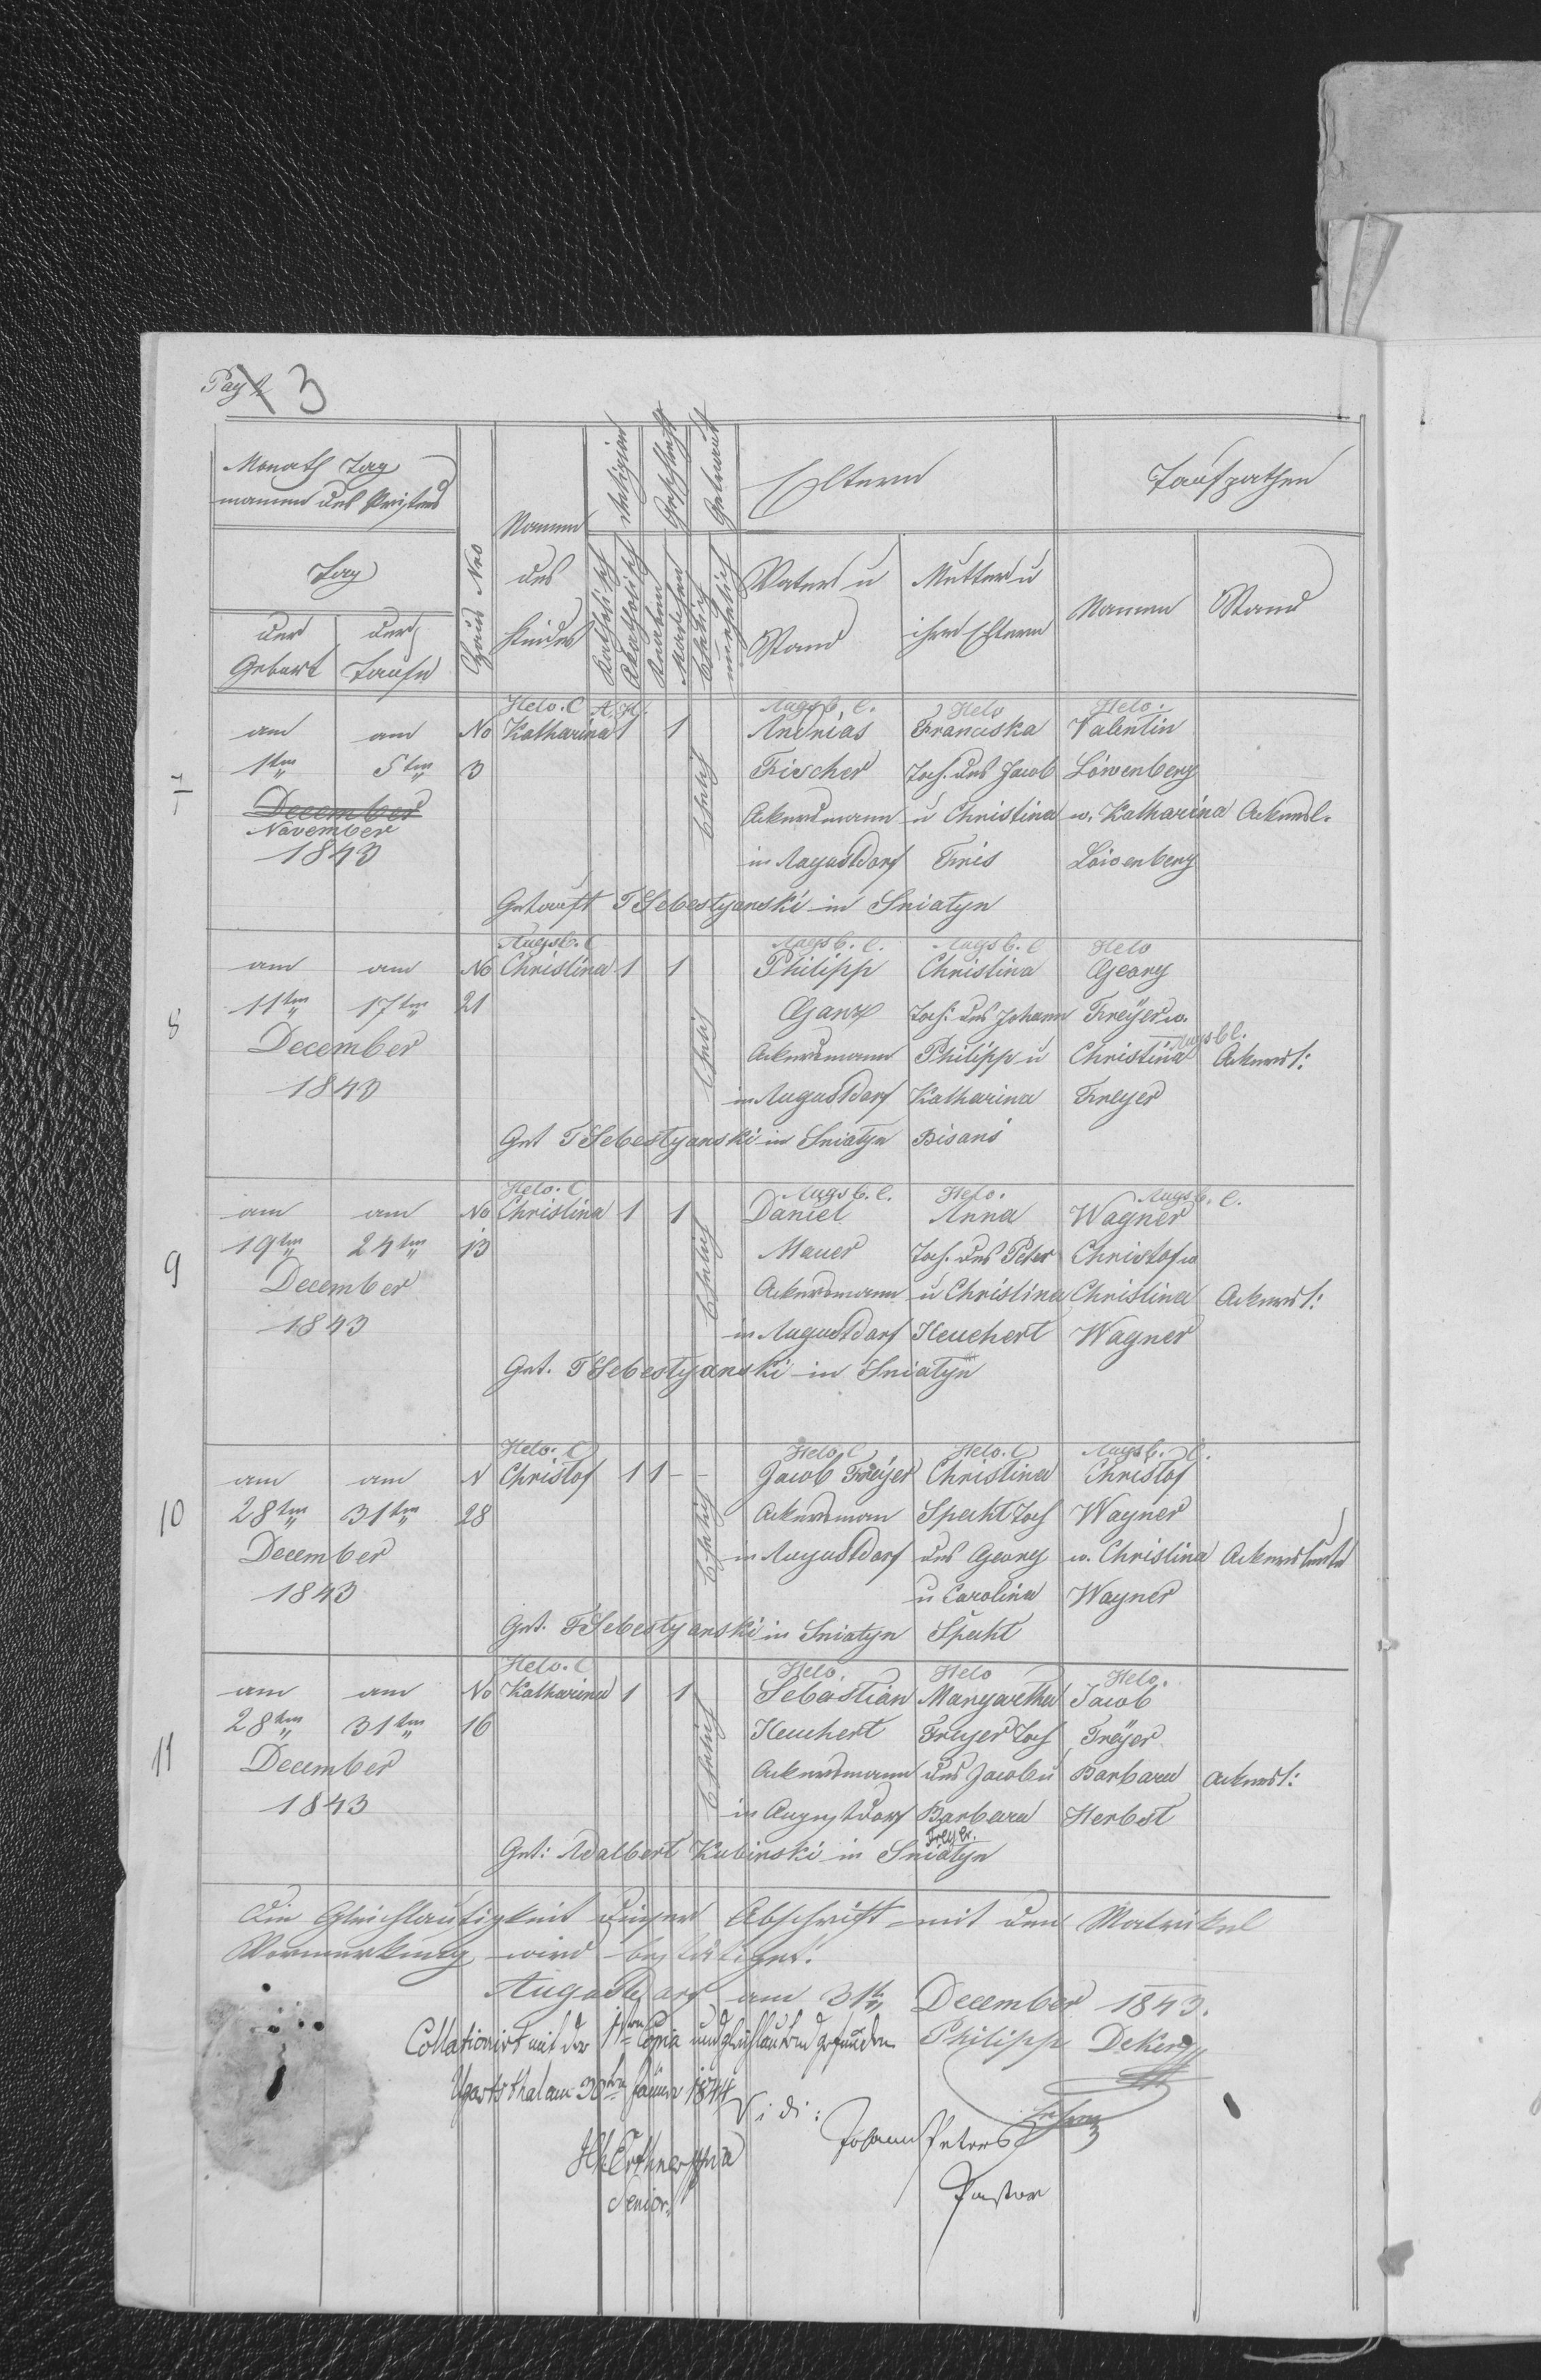 Pag 2 3
Monath Tag
namen des Pristers
Tag
der Geburt
der Taufe
Haus Nro
Namen
des
Kindes
Religion
Katholisch
Akatholisch
Geschlecht
Knaben
Madchen
Getraut
Ehelich
unehelich
Eltern
Vater u
Stand
Mutter u
ihre Eltern
Taufpathen
Namen
Stand
7
Helv. C A. H. Augsb. C. Helv Helv.
am am No Katharina 1 1 Andrias Franciska Valentin
1ten 5ten 3 Ehelich Fischer Toch. des Jacob Löwenberg
December Ackersmann u Christina u. Katharina Ackersl.
November
1843 in Augustdorf Fris Löwenberg
Getauft T Sebestyanski in Sniatyn
8
Augsb. C Augsb. C. Augsb. C Helv
am am No Christina 1 1 Philipp Christina Georg
11ten 17ten 21 Ehelich Ganz Toch. des Johann Freÿer u.
Augsb C.
December Ackersmann Philipp u Christina Ackersl:
1843 in Augustdorf Katharina Freyer
Get T Sebestyanski in Sniatyn Bisans
9
Helv. C Augsb. C. Helv. Augsb. C.
am am No Christina 1 1 Daniel Anna Wagner
19ten 24ten 13 Ehelich Mauer Toch. des Peter Christof u
December Ackersmann u Christina Christina Ackersl:
1843 in Augustdorf Heuchert Wagner
Get. T Sebestyanski in Sniatyn
10
Helv. C Helv. C Helv. C Augsb. C.
am am N Christof 1 1 - - Jacob Freÿer Christina Christof
28ten 31ten 28 Ehelich Ackersman Specht Toch Wagner
December in Augustdorf des Georg u. Christina Ackersleute
1843 u Carolina Wagner
Get. T Sebestyanski in Sniatyn Specht
11
Helv. C Helv. Helv Helv.
am am No Katharina 1 1 Sebastian Margaretha Jacob
28ten 31ten 16 Ehelich Heuchert Freyer Toch Freÿer
December Ackersmann des Jacob u Barbara Ackersl:
1843 in Augustdorf Barbara Herbst
Freyer.
Get: Adalbert Kubinski in Sniatyn
Die Gleichlautigkeit dieser Abschrift mit den Matrikel
Vormerkung wird bestätiget.
Augustdorf am 31ten December 1843.
Collationirt mit der 1ten Copia und gleichlautend gefunden Philipp Deker
Ugartsthal am 30ten Jäner 1844
Vidi: Lehrer
Johann Peters
Senior
Pastor